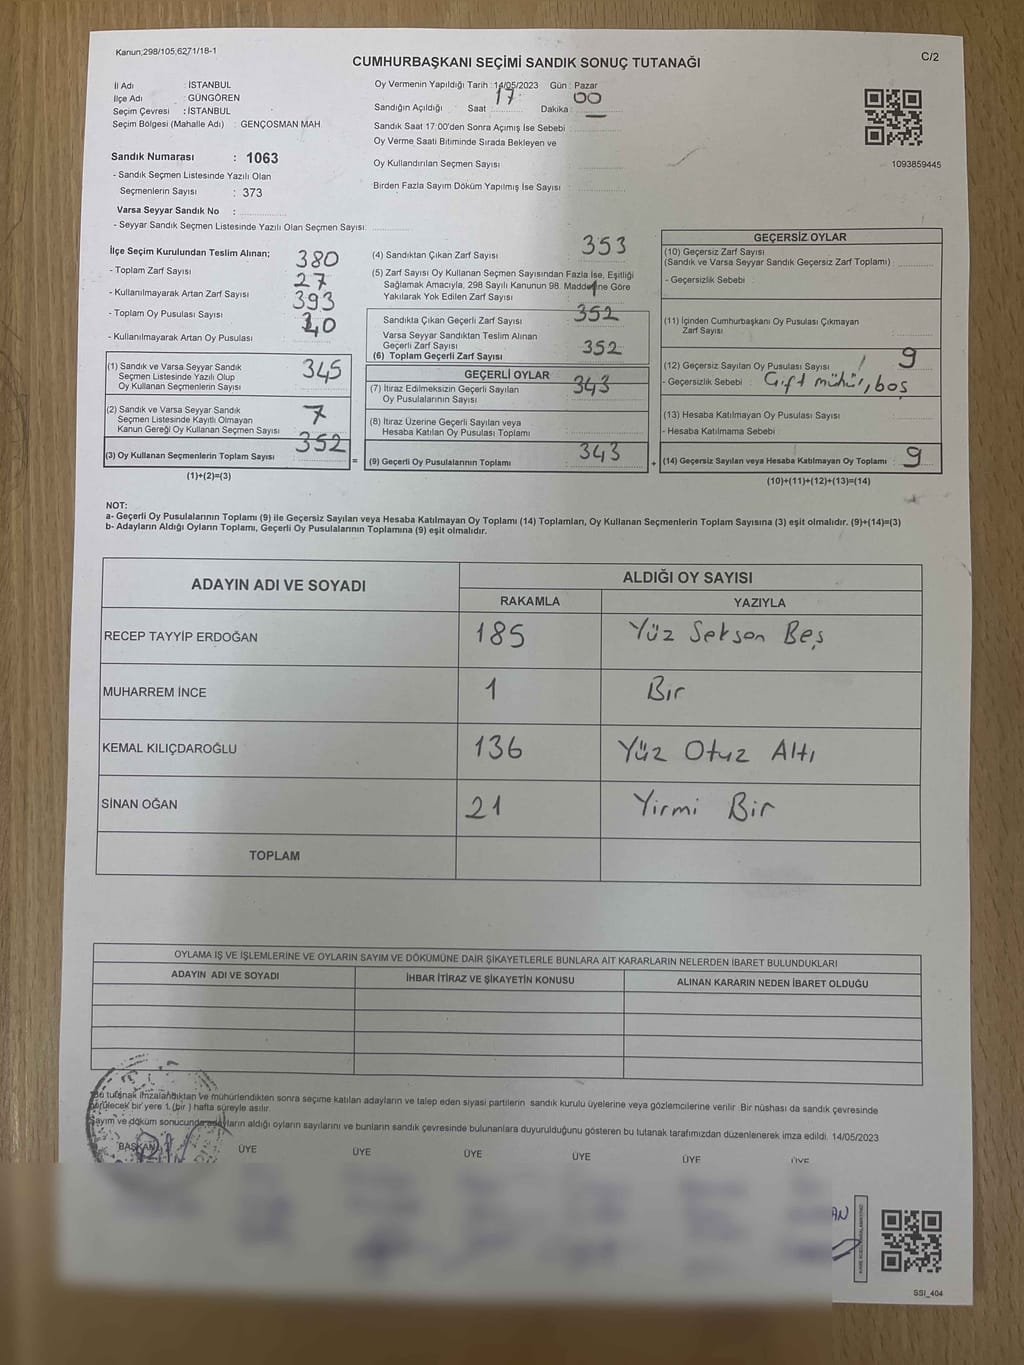 Kanun;298/105,6271/18-1
C/2
CUMHURBAŞKANI SEÇİMİ SANDIK SONUÇ TUTANAĞI
İl Adı : İSTANBUL
İlçe Adı : GÜNGÖREN
Seçim Çevresi : İSTANBUL
Seçim Bölgesi (Mahalle Adı) : GENÇOSMAN MAH.
Sandık Numarası : 1063
- Sandık Seçmen Listesinde Yazılı Olan
Seçmenlerin Sayısı : 373
Varsa Seyyar Sandık No :
- Seyyar Sandık Seçmen Listesinde Yazılı Olan Seçmen Sayısı:
Oy Vermenin Yapıldığı Tarih : 14/05/2023 Gün : Pazar
Sandığın Açıldığı Saat 17 Dakika 00
Sandık Saat 17:00'den Sonra Açımış İse Sebebi
Oy Verme Saati Bitiminde Sırada Bekleyen ve
Oy Kullandırılan Seçmen Sayısı
Birden Fazla Sayım Döküm Yapılmış İse Sayısı
1093859445
İlçe Seçim Kurulundan Teslim Alınan;
- Toplam Zarf Sayısı 380
- Kullanılmayarak Artan Zarf Sayısı 27
- Toplam Oy Pusulası Sayısı 393
- Kullanılmayarak Artan Oy Pusulası 40
(1) Sandık ve Varsa Seyyar Sandık
Seçmen Listesinde Yazılı Olup
Oy Kullanan Seçmenlerin Sayısı 345
(2) Sandık ve Varsa Seyyar Sandık
Seçmen Listesinde Kayıtlı Olmayan
Kanun Gereği Oy Kullanan Seçmen Sayısı 7
(3) Oy Kullanan Seçmenlerin Toplam Sayısı 352
(1)+(2)=(3)
(4) Sandıktan Çıkan Zarf Sayısı 353
(5) Zarf Sayısı Oy Kullanan Seçmen Sayısından Fazla İse, Eşitliği
Sağlamak Amacıyla, 298 Sayılı Kanunun 98. Maddesine Göre
Yakılarak Yok Edilen Zarf Sayısı 1
Sandıkta Çıkan Geçerli Zarf Sayısı 352
Varsa Seyyar Sandıktan Teslim Alınan
Geçerli Zarf Sayısı
(6) Toplam Geçerli Zarf Sayısı 352
GEÇERLİ OYLAR
(7) İtiraz Edilmeksizin Geçerli Sayılan
Oy Pusulalarının Sayısı 343
(8) İtiraz Üzerine Geçerli Sayılan veya
Hesaba Katılan Oy Pusulası Toplamı
= (9) Geçerli Oy Pusulalarının Toplamı 343
GEÇERSİZ OYLAR
(10) Geçersiz Zarf Sayısı
(Sandık ve Varsa Seyyar Sandık Geçersiz Zarf Toplamı) :
- Geçersizlik Sebebi :
(11) İçinden Cumhurbaşkanı Oy Pusulası Çıkmayan
Zarf Sayısı
(12) Geçersiz Sayılan Oy Pusulası Sayısı 9
- Geçersizlik Sebebi : Çift mühür, boş
(13) Hesaba Katılmayan Oy Pusulası Sayısı :
- Hesaba Katılmama Sebebi :
+ (14) Geçersiz Sayılan veya Hesaba Katılmayan Oy Toplamı : 9
(10)+(11)+(12)+(13)=(14)
NOT:
a- Geçerli Oy Pusulalarının Toplamı (9) ile Geçersiz Sayılan veya Hesaba Katılmayan Oy Toplamı (14) Toplamları, Oy Kullanan Seçmenlerin Toplam Sayısına (3) eşit olmalıdır. (9)+(14)=(3)
b- Adayların Aldığı Oyların Toplamı, Geçerli Oy Pusulalarının Toplamına (9) eşit olmalıdır.
ADAYIN ADI VE SOYADI
ALDIĞI OY SAYISI
RAKAMLA YAZIYLA
RECEP TAYYİP ERDOĞAN 185 Yüz Seksen Beş
MUHARREM İNCE 1 Bir
KEMAL KILIÇDAROĞLU 136 Yüz Otuz Altı
SİNAN OĞAN 21 Yirmi Bir
TOPLAM
OYLAMA İŞ VE İŞLEMLERİNE VE OYLARIN SAYIM VE DÖKÜMÜNE DAİR ŞİKAYETLERLE BUNLARA AİT KARARLARIN NELERDEN İBARET BULUNDUKLARI
ADAYIN ADI VE SOYADI İHBAR İTİRAZ VE ŞİKAYETİN KONUSU ALINAN KARARIN NEDEN İBARET OLDUĞU
Bu tutanak imzalandıktan ve mühürlendikten sonra seçime katılan adayların ve talep eden siyasi partilerin sandık kurulu üyelerine veya gözlemcilerine verilir Bir nüshası da sandık çevresinde
görülecek bir yere 1 (bir ) hafta süreyle asılır.
Sayım ve döküm sonucunda adayların aldığı oyların sayılarını ve bunların sandık çevresinde bulunanlara duyurulduğunu gösteren bu tutanak tarafımızdan düzenlenerek imza edildi. 14/05/2023
BAŞKAN ÜYE ÜYE ÜYE ÜYE ÜYE ÜYE
SSI_404